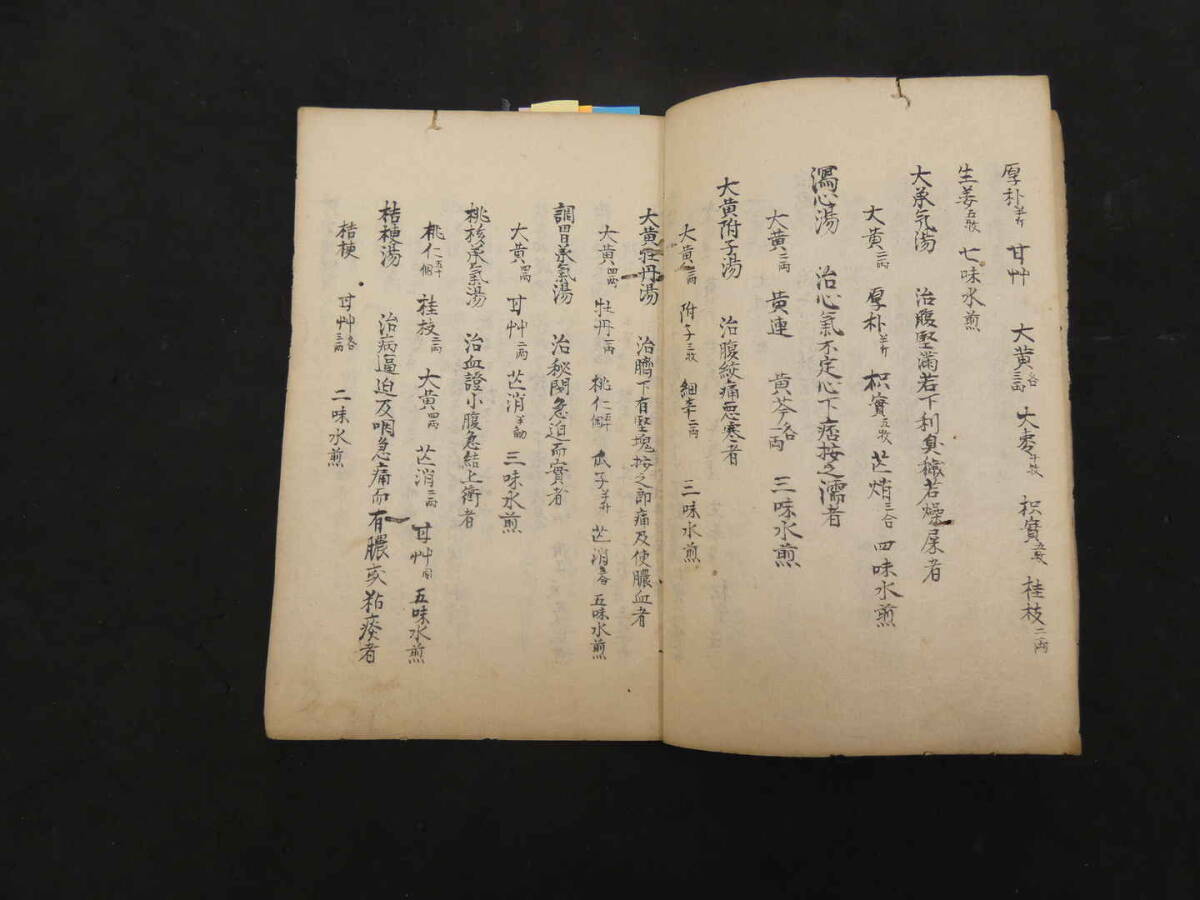 厚朴半斤 甘艸 大黄各三兩 大棗十枚 枳實五枚 桂枝二兩
生姜五枚 七味水煎
大承気湯 治腹堅滿若下利臭穢若燥屎者
大黄二兩 厚朴半斤 枳實五枚 芒硝三合 四味水煎
瀉心湯 治心氣不定心下痞按之濡者
大黄二兩 黄連 黄芩各一兩 三味水煎
大黄附子湯 治腹絞痛悪寒者
大黄三兩 附子三枚 細辛二兩 三味水煎
大黄牡丹湯 治臍下有堅塊按之即痛及使膿血者
大黄四兩 牡丹一兩 桃仁五十個 瓜子半升 芒消三合 五味水煎
調胃承氣湯 治秘閉急迫而實者
大黄四兩 甘艸二兩 芒消半斤 三味水煎
桃核承氣湯 治血證小腹急結上衝者
桃仁五十個 桂枝二兩 大黄四兩 芒消二兩 甘艸同 五味水煎
桔梗湯 治病逼迫及咽急痛而有膿或粘痰者
桔梗 甘艸各三兩 二味水煎